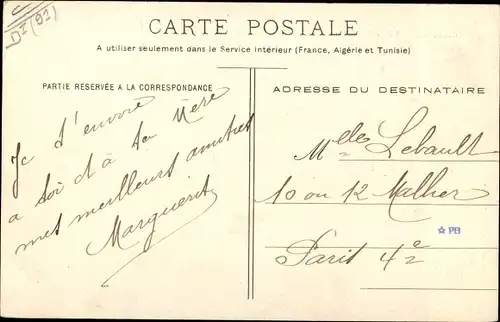 DI (92)
CARTE POSTALE
A utiliser seulement dans le Service intérieur (France, Algérie et Tunisie)
PARTIE RÉSERVÉE A LA CORRESPONDANCE
ADRESSE DU DESTINATAIRE
Je t'envoie
a toi et à ta Mère
mes meilleurs amitiés
Marguerite
Melles Lebault
10 ou 12 Malher
☆ PB
Paris 4e